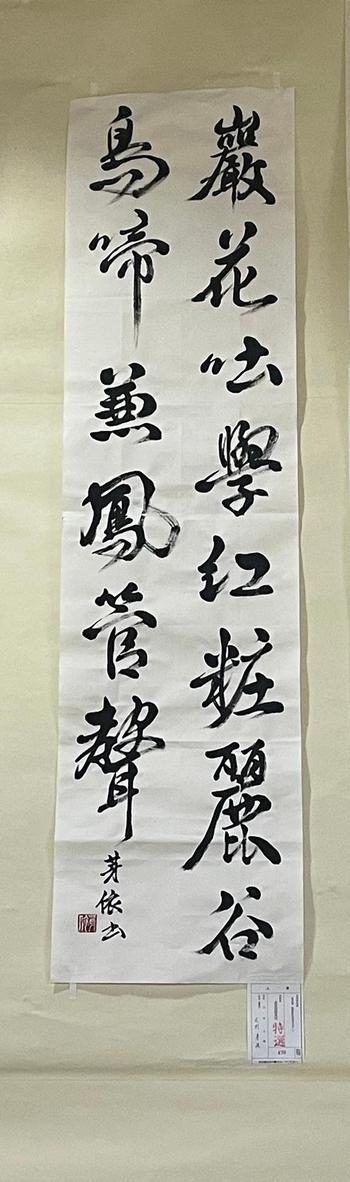 巖花吐學紅粧麗谷
鳥啼兼鳳管聲
芽依書
特選